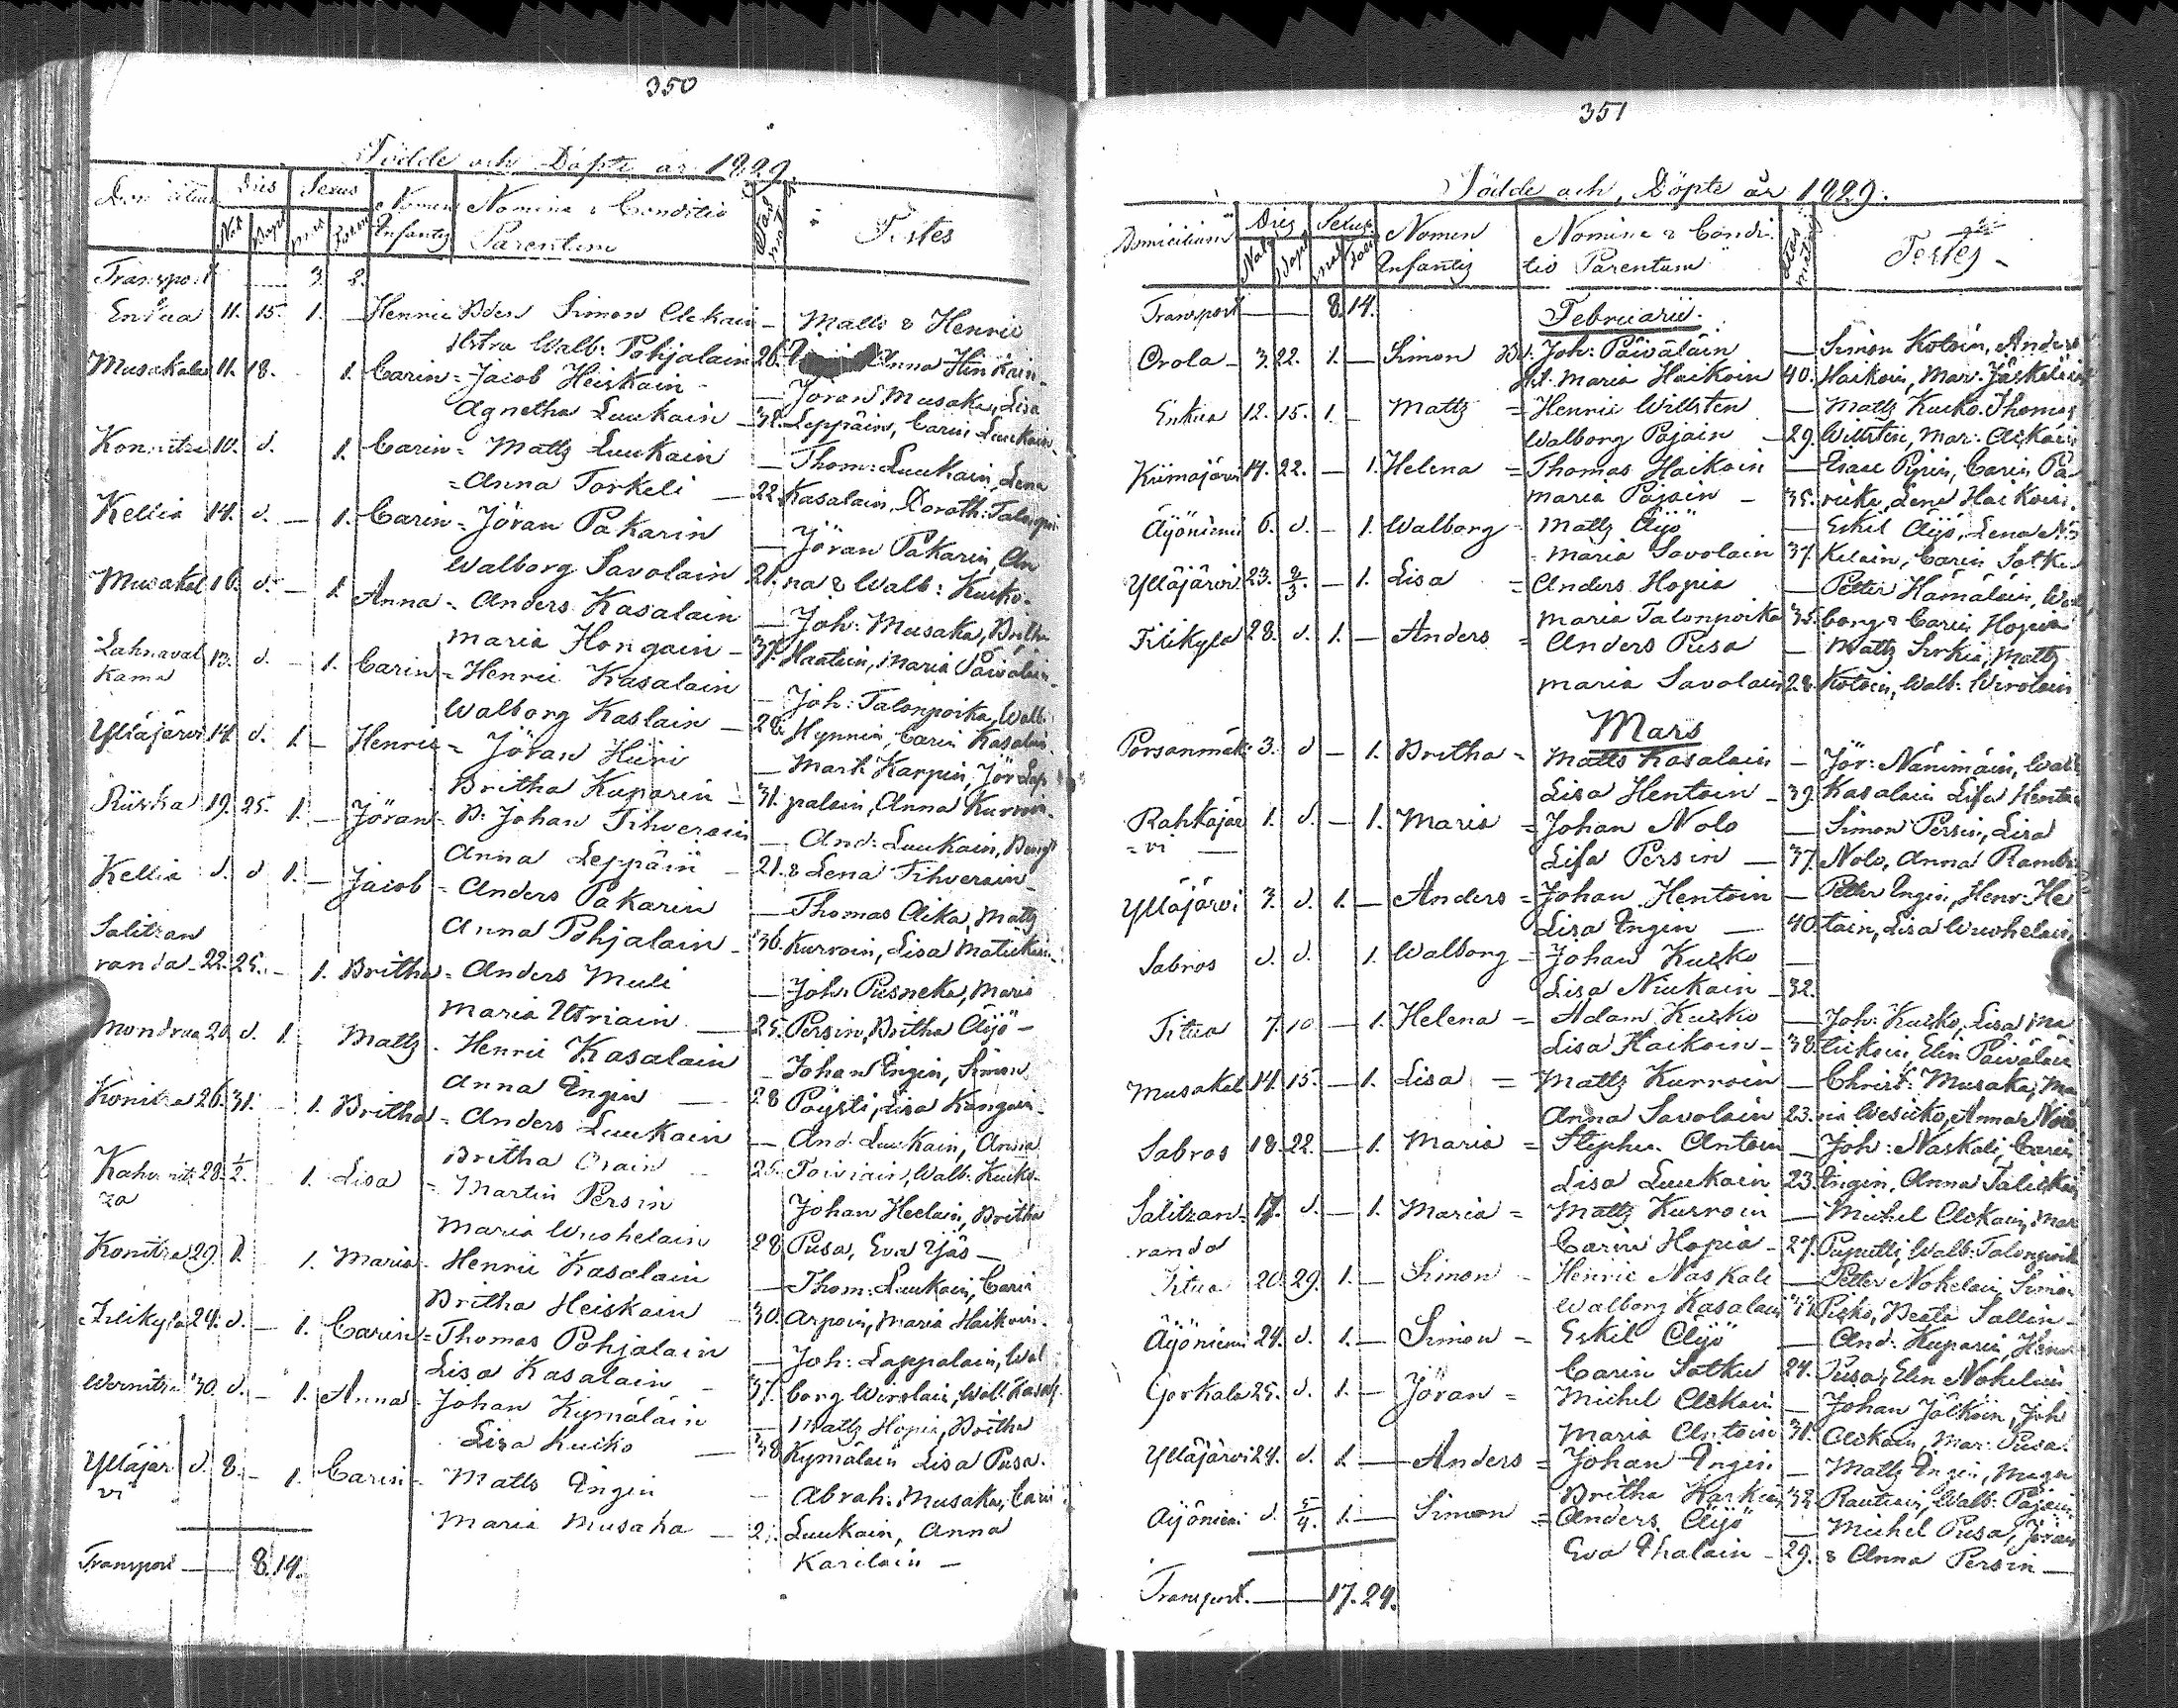 350
Födde och Döpte år 1829.
Dies Sexus Nomen Nomina & Conditio Testes
Nat Bapt Infantis Parentum
Transport 3. 2.
Enkua 11. 15. 1. — Henric Bden Simon Ackain — Matts & Henric
Hstra Walb: Pohjalain 26. Anna Hinkain
Musakala 11. 18. 1. Carin = Jacob Heiskain — Jöran Musaka, Lisa
Agnetha Luukain — 32. Leppäin, Carin Luukain
Konnitza 10. d. 1. Carin = Matts Luukain — Thom: Luukain, Lena
= Anna Torkeli — 22. Kasalain, Doroth: Talonpoi
Kellia 14. d. — 1. Carin = Jöran Pakarin — Jöran Pakarin, An
Walborg Savolain 21. na & Walb: Kuiko.
Musakal 16. d. — 1. Anna = Anders Kasalain — Joh: Musaka, Britha
Maria Hongain — 37. Haatain, Maria Päivälain
Lahnaval 13. d. — 1. Carin = Henric Kasalain — Joh: Talonpoika, Walb:
kama Walborg Kaslain — 28. Hynnin, Carin Kasalain
Ylläjärvi 14. d. 1. — Henric = Jöran Hiiri — Mart: Karpin, Jör Lap
Britha Kuparin — 31. palain, Anna Kurroin
Riiska 19. 25. 1. — Jöran = B: Johan Tihverain — And: Luukain, Bengt
Anna Leppäin — 21. & Lena Tihverain
Kellia d. d 1. — Jacob = Anders Pakarin — Thomas Aika, Matts
Anna Pohjalain — 36. Kurroin, Lisa Matiikain
Salitzan
randa — 22. 25. — 1. Britha = Anders Muli — Joh: Pusneka, Maria
Maria Utriain — 25. Persin, Britha Äijö —
Mondraa 20. d. 1. Matts = Henric Kasalain — Johan Engin, Simon
Anna Engin — 28 Pöysti, Lisa Kangain
Konitza 26. 31. — 1. Britha = Anders Luukain — And: Luukain, Anna
Britha Orain — 25. Toiviain, Walb: Kuiko
Kahonit 28. 1/2. 1. Lisa = Martin Persin Johan Heelain, Britha
za Maria Wuohelain 28 Pusa, Eva Äijäs —
Konitza 29. 1. 1. Maria = Henric Kasalain — Thom: Luukain, Carin
Britha Heiskain — 30. Arpoin, Maria Haikoin
Tilikylä 24. d. — 1. Carin = Thomas Pohjalain — Joh: Lappalain, Wal
Lisa Kasalain — 37. borg Wirolain, Walb: Kasal
30. d. — 1. Anna = Johan Kymäläin — Matts Hopia, Britha
Lisa Kuiko — 38 Kymäläin Lisa Pusa.
Ylläjär d. 8. — 1. Carin = Matts Engin — Abrah: Musaka, Carin
vi Maria Musaka — 2. Luukain, Anna
Karilain —
Transport — 8. 14.
351
Födde och Döpte år 1829.
Domicilium Dies Sexus Nomen Nomina & Condi: Testes
Nat Bapt Infantis tio Parentum
Transport — 8. 14. Februarii.
Orola — 3. 22. 1. — Simon Bd: Joh: Päiväläin — Simon Kotoin, Anders
Hst. Maria Haikoin 40. Haikoin, Mar: Jäskeläin
Enkua 12. 15. 1. — Matts = Henric Willsten — Matts Kuiko. Thomas
Walborg Pajain — 29. Willsten, Mar: Ackain
Kiimajärvi 14. 22. — 1. Helena = Thomas Haikoin — Isaac Pipin, Carin Pa
Maria Pajain — 35. rikka, Lena Haikoin.
Äijöniemi 6. d. — 1. Walborg = Matts Äijö — Eskil Äijö, Lena
Maria Savolain 37. Carin Sotku
Ylläjärvi 23. 2/3. — 1. Lisa = Anders Hopia — Petter Hämäläin, Wal
Maria Talonpoika 35. borg & Carin Hopia
Tilikylä 28. d. 1. — Anders = Anders Pusa — Matts Sirkia, Matts
Maria Savolain 28. Kotoin, Walb: Wirolain
Mars
Porsanmäk: 3. d — 1. Britha = Matts Kasalain — Jör: Nänimäin, Walb
Lisa Hentoin — 39. Kasalain Lisa Hentoin
Rahkajär 1. d. — 1. Maria = Johan Nolo — Simon Persin, Lisa
= vi — Lisa Persin — 37. Nolo, Anna Ramb
Ylläjärvi 3. d. 1. — Anders = Johan Hentoin — Petter Engin, Henr: He
Lisa Engin — 40. toin, Lisa Wuohelain
Sabros d. d. 1. Walborg — Johan Kuiko —
Lisa Niukain — 32.
Titua 7. 10 — 1. Helena = Adam Kuiko — Joh: Kuiko, Lisa Ma
Lisa Haikoin — 38. tiikain, Elin Päiväläin
Musakal 14. 15. — 1. Lisa = Matts Kurroin — Christ: Musaka, Ma
Anna Savolain 23. ria Wesikko, Anna
Sabros 18. 22. — 1. Maria = Stephen Antoin — Joh: Naskali, Carin
Lisa Luukain 23. Engin, Anna
Salitzan= 17. d. — 1. Maria = Matts Kurroin — Michel Ackain, Mar
randa Carin Hopia — 27. Puputti, Walb: Talonpoik
Titua 20. 29. 1. — Simon = Henric Naskali — Petter Nokelain Simon
Walborg Kasalain Pisko, Beata Sallin —
Äijöniemi 24. d. 1. — Simon = Eskil Äijö — And: Kuparin, Henr
Carin Sotku 24. Pusa, Elin Nokelain
Gorkala 25. d. 1. — Jöran = Michel Ackain — Johan Jälköin, Joh
Maria Antoin 31. Ackain, Mar: Pusa.
Ylläjärvi 24. d. 1. — Anders = Johan Engin. — Matts Engin,
Britha Karkain 32. Rautiain, Walb: Pajain
Äijöniemi d. 5/4. 1. — Simon = Anders Äijö — Michel Pusa, Jöran
Eva Ihalain — 29. & Anna Persin —
Transport. — 17. 24.